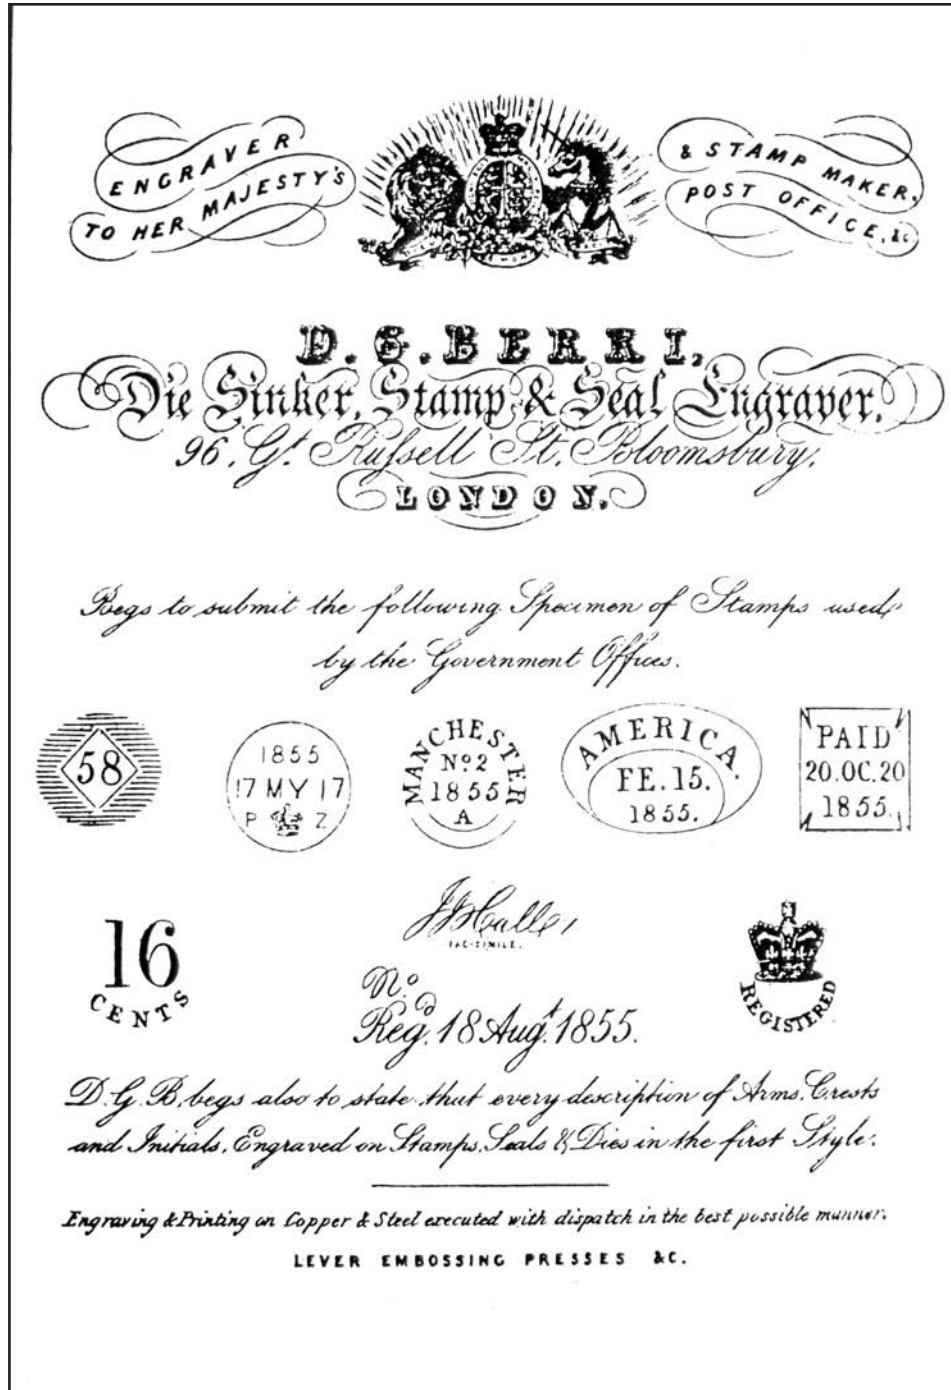 ENGRAVER
TO HER MAJESTY'S
& STAMP MAKER,
POST OFFICE, &c
D. G. BERRI,
Die Sinker, Stamp & Seal Engraver.
96, Gt. Russell St. Bloomsbury,
LONDON.
Begs to submit the following Specimen of Stamps used
by the Government Offices.
58
1855
17 MY 17
P Z
MANCHESTER
No. 2
1855
A
AMERICA.
FE. 15.
1855.
PAID
20. OC. 20
1855.
16
CENTS
FAC-SIMILE.
No.
Regd. 18 Augt. 1855.
REGISTERED
D. G. B. begs also to state that every description of Arms, Crests
and Initials, Engraved on Stamps, Seals & Dies in the first Style.
Engraving & Printing on Copper & Steel executed with dispatch in the best possible manner.
LEVER EMBOSSING PRESSES &C.